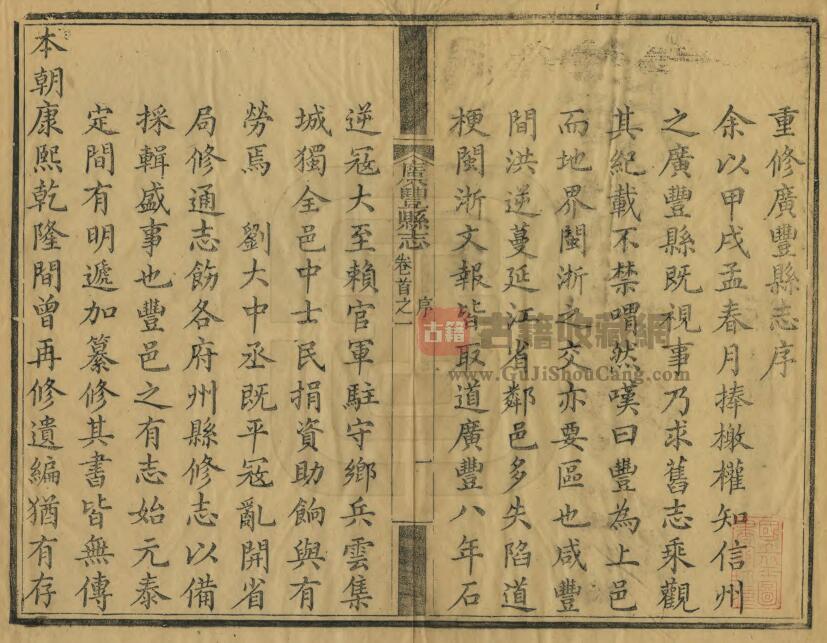 重修廣豐縣志序
余以甲戌孟春月捧檄權知信州
之廣豐縣既視事乃求舊志乘觀
其紀載不禁喟然嘆曰豐為上邑
而地界閩浙之交亦要區也咸豐
間洪逆蔓延江省鄰邑多失陷道
梗閩浙文報皆取道廣豐八年石
廣豐縣志
卷首之一
序
一
逆冦大至賴官軍駐守鄉兵雲集
城獨全邑中士民捐資助餉與有
勞焉 劉大中丞既平冦亂開省
局修通志飭各府州縣修志以備
採輯盛事也豐邑之有志始元泰
定間有明遞加纂修其書皆無傳
本朝康熙乾隆間曾再修遺編猶有存
古籍
古籍收藏網
www.GuJiShouCang.com